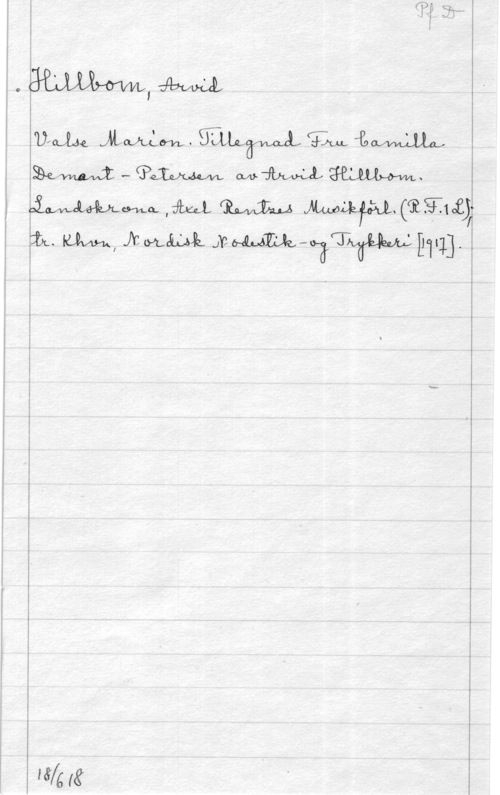 Pf D
. Hillbom, Arvid
Valse Marion. Tillegnad Fru Camilla
Demant-Petersen av Arvid Hillbom.
Landskrona, Axel Rentzes Musikförl. (R.F.1 L);
tr. Khvn, Nordisk Nodestik-og Trykkeri [1917].
18/6 18